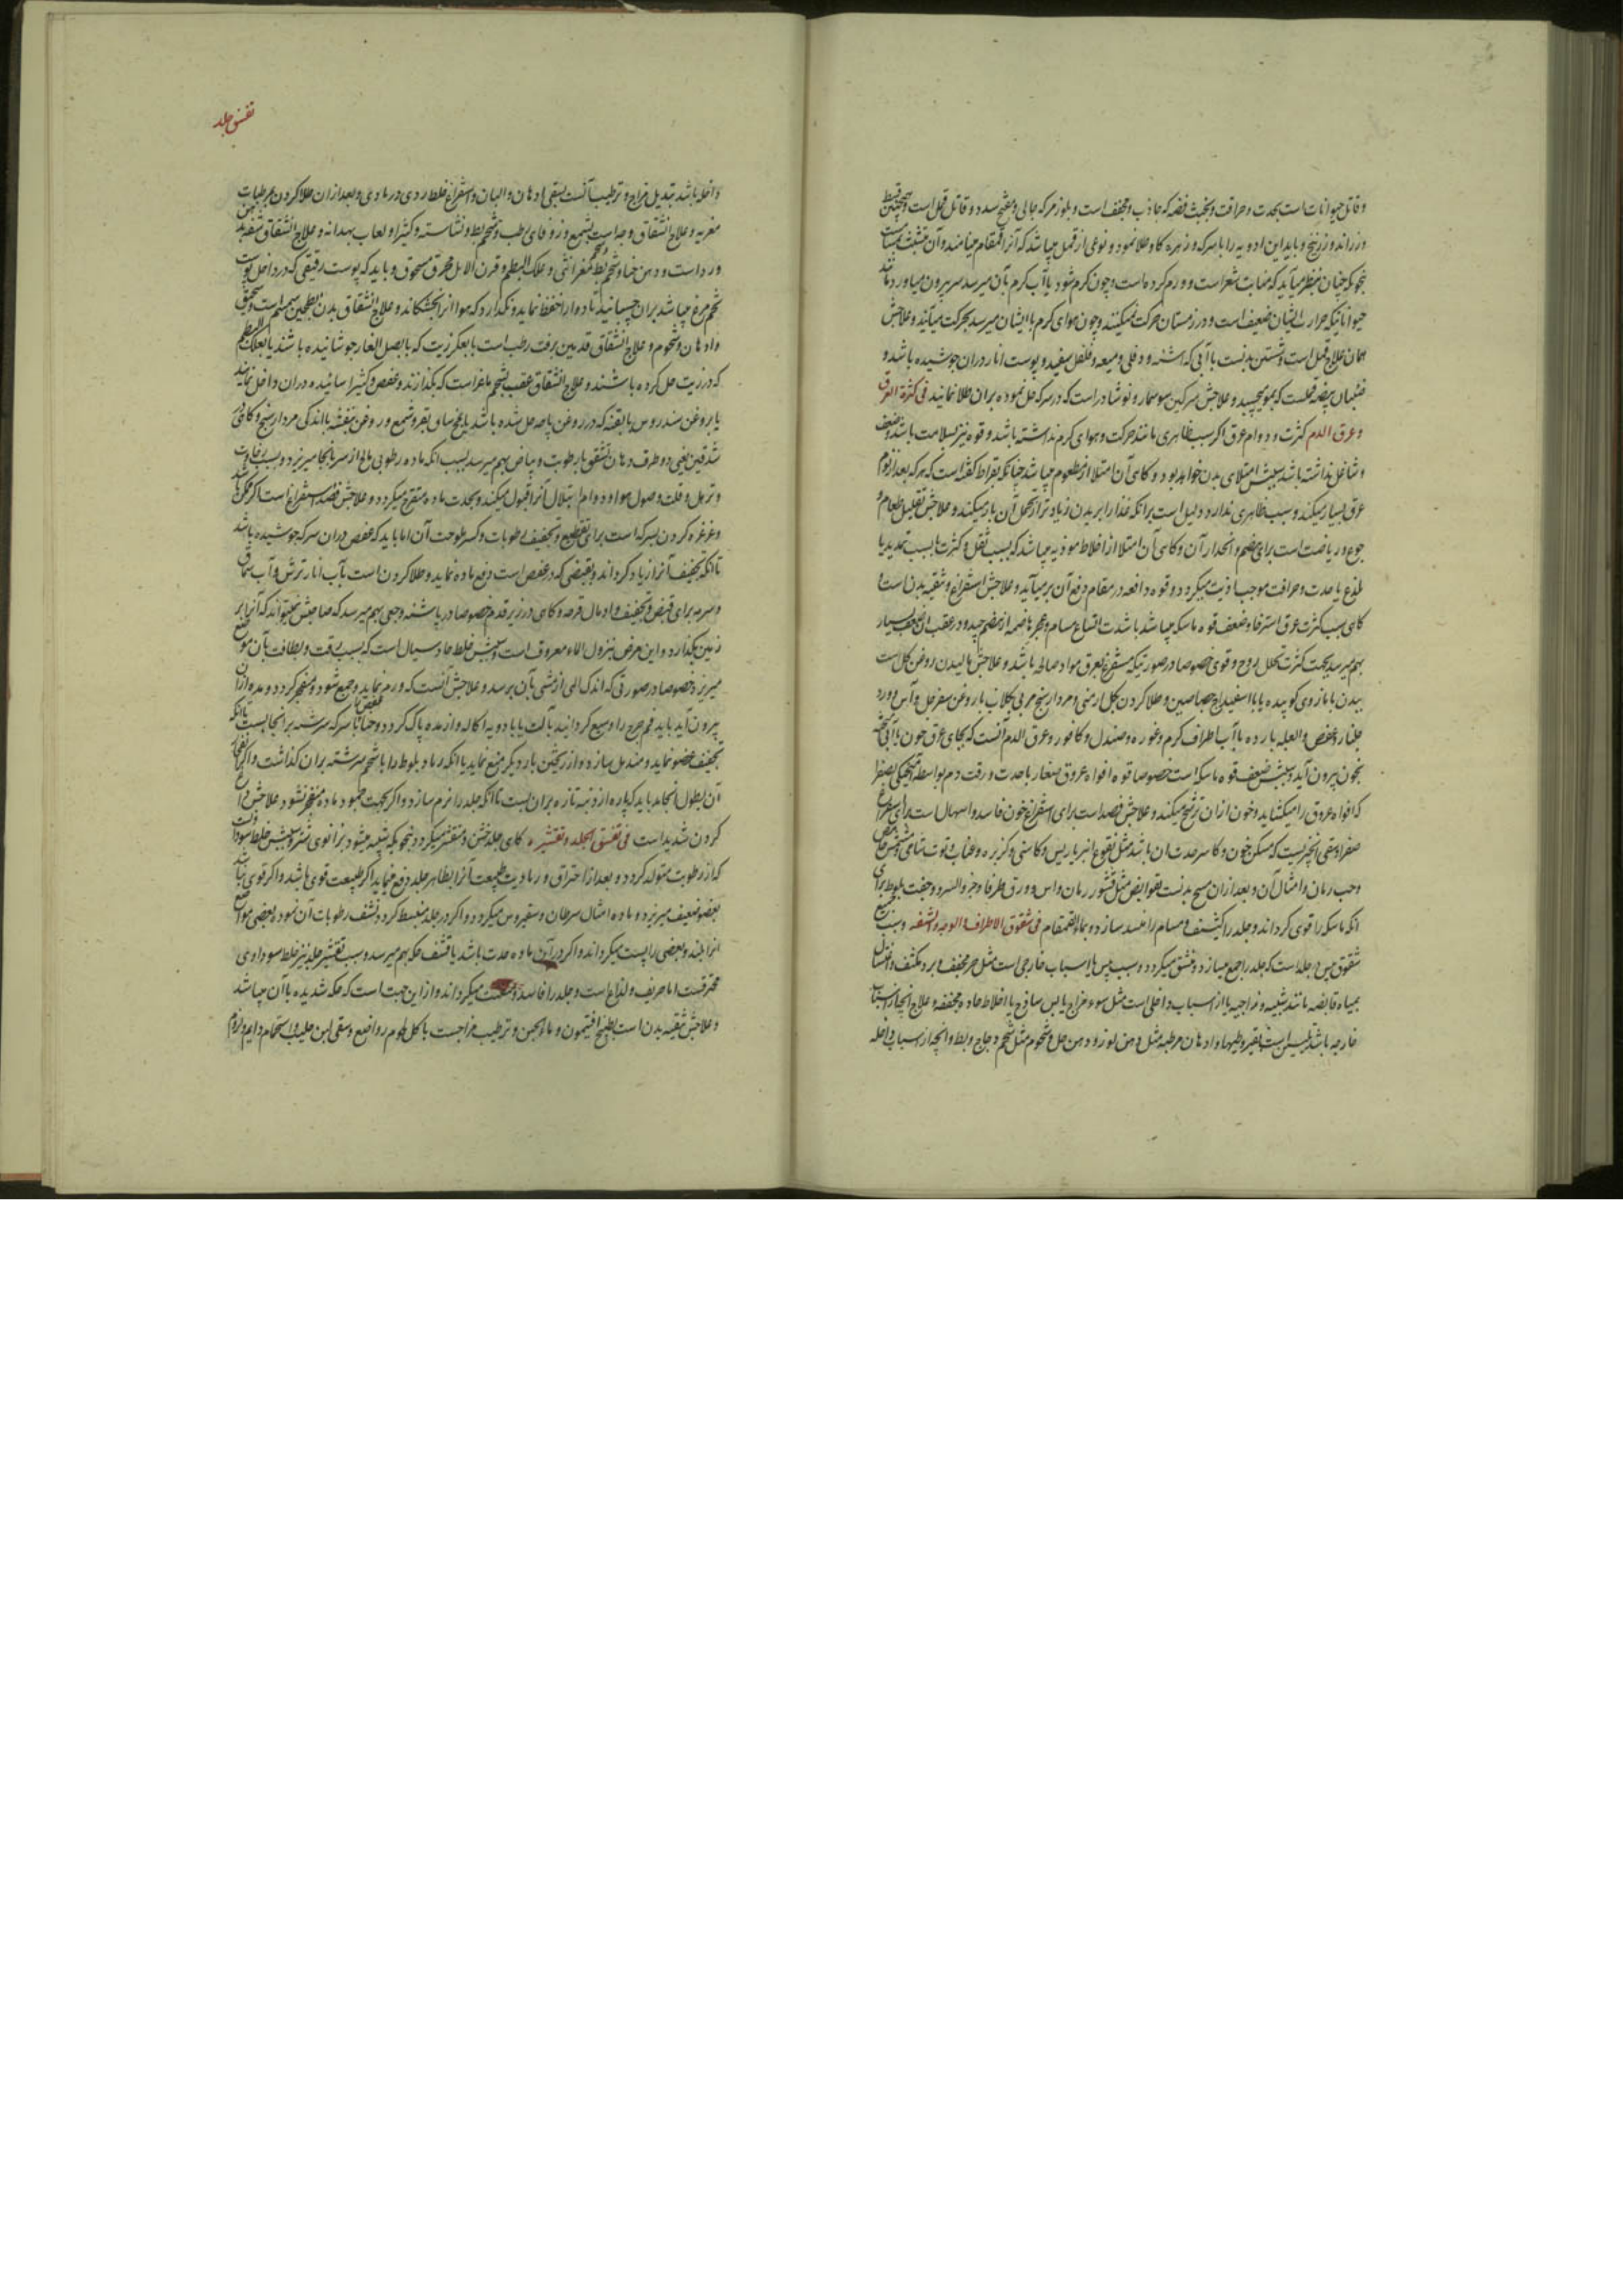 و قاتل حیوانات است بحدت و حرافت و بخبث فضه که جاذب و مجفف است و بلوز مر که جالی و مفتح سدد و قاتل قمل است و همچنین قسط
و زراوند و زرنیخ و باید این ادویه را با سرکه و زهره کاو طلا نمود و نوعی از قمل میباشد که آنرا قمقام مینامند و آن
بنحویکه چنان بنظر میآید که منابت شعر است و ورم کرده است و چون گرم شود یا آب گرم بآن میرسد سر بیرون میاورد مانند
حیواناتیکه حرارت ایشان ضعیف است و در زمستان حرکت نمیکنند و چون هوای گرم با ایشان میرسد بحرکت میآیند و علاجش
همان علاج قمل است و شستن بدنست با آبی که اشنه و دفلی و میعه و فلفل سفید و پوست انار دران جوشیده باشد و
صئبان بیضه قملست که بمو میچسبد و علاجش سرکین سوسمار و نوشادر است که در سرکه حل نموده بران طلا نمایند فی کثرة العرق
و عرق الدم کثرت و دوام عرق اگر سبب ظاهری مانند حرکت و هوای گرم نداشته باشد و قوه نیز بسلامت باشد و ضعف
و شاغل نداشته باشد سببش امتلای بدن خواهد بود و کاهی آن امتلا از مطعوم میباشد چنانکه بقراط گفته است که هر که بعد از نوم
عرق بسیار میکند و سبب ظاهری ندارد دلیل است برانکه غذا را بر بدن زیادتر از تحمل آن بار میکند و علاجش تقلیل طعام و
جوع و ریاضت است برای هضم و انحدار آن و کاهی آن امتلا از اخلاط موذیه میباشد که بسبب ثقل و کثرت یا بسبب تمدید یا
لذع یا حدت و حرافت موجب اذیت میگردد و قوه دافعه در مقام دفع آن بر میآید و علاجش استفراغ و تنقیه بدن است و
کاهی سبب کثرت عرق استرخا و ضعف قوه ماسکه میباشد یا شدت اتساع مسام و عجز هاضمه از هضم جید و در عقب آن ضعف بسیار
بهم میرسد بجهت کثرت تحلل روح و قوی خصوصا در صورتیکه مستفرغ بعرق مواد صالحه باشد و علاجش مالیدن روغن گل است
ببدن با مازوی کوبیده یا با اسفیداج رصاصین و طلا کردن بگل ارمنی و مردارسنج مربی بگلاب یا روغن سفرجل و آس و ورد
جلنار و عفص و العبه بارده با آب اطراف کرم و غوره و صندل و کافور و عرق الدم آنست که بجای عرق خون یا آبی آمیخته
بخون بیرون آید و سببش ضعف قوه ماسکه است خصوصا قوه افواه عروق صغار با حدت و رقت دم بواسطه آمیختگی بصفرا
که افواه عروق را میگشاید و خون از ان ترشح میکند و علاجش فصد است برای استفراغ خون فاسد و اسهال است برای استفراغ
صفرا و سقی آنچیزیست که مسکن خون و کاسر حدت ان باشد مثل نقوع انبرباریس و کاسنی و کزبره و عناب و توت شامی
و حب رمان و امثال آن و بعد ازان مسح بدنست بقوابض مثل قشور رمان و آس و ورق طرفا و جوز السرو و جفت بلوط برای
انکه ماسکه را قوی گرداند و جلد را کثیف و مسام را منسد سازد و بماء القمقام فی شقوق الاطراف و الوجه و الشفه و سبب جمیع
شقوق یبس جلد است که جلد را جمع میسازد و منشق میگردد و سبب یبس یا اسباب خارجی است مثل حر مجفف و برد مکثف و اغتسال
بمیاه قابضه مانند شبیه و زاجیه یا از اسباب داخلی است مثل سوء مزاج یابس ساذج یا اخلاط حاده مجففه و علاج آنچه از اسباب
خارجه باشد تلیین است بقیروطیها و ادهان مرطبه مثل دهن لوز و دهن حل و شحوم مثل شحم دجاج و بط و آنچه از اسباب داخله
تفسق جلد
داخله باشد تبدیل مزاج و ترطیب آنست بسقی ادهان و البان و استفراغ خلط ردی در مادی و بعد ازان طلا کردن بمرطبات
مغریه و علاج انشقاق وجه است بشمع و زوفای رطب و شحم بط و نشاسته و کثیرا و لعاب بهدانه و علاج انشقاق شفه بدهن
ورد است و دهن حنا و شحم بط و علک البطم و قرن الایل محرق مسحوق و باید که پوست رقیقی که در داخل پوست
تخم مرغ میباشد بران چسبانید تا دوا را حفظ نماید و نگذارد که هوا آنرا بخشکاند و علاج انشقاق بدن بطحین سمسم است و سمن
و ادهان و شحوم و علاج انشقاق قدمین بزفت رطب است یا بعکر زیت که با بصل الفار جوشانیده باشند یا بعلک البطم
که در زیت حل کرده باشند و علاج انشقاق عقب بشحم ماعز است که بگذازند و عفص و کثیرا سائیده دران داخل نمایند
یا بروغن سندروس یا بقنه که در روغن پاچه حل شده باشد یا بمخ ساق بقر و شمع و روغن بنفشه با اندکی مردارسنج و کاهی در
شدقین یعنی دو طرف دهان شقوق با رطوبت و بیاض بهم میرسد بسبب انکه ماده رطوبی مالح از سر بانجا میریزد و بسبب رخاوت
و ترهل و قلت وصول مواد و دوام ابتلال آنرا قبول میکند و بحدت ماده متقرح میگردد و علاجش فصد و استفراغ است اگر ممکن باشد
و غرغره کردن بسرکه است برای تقطیع و تجفیف رطوبات و کسر ملوحت آن اما باید که عفص دران سرکه جوشیده باشد
تا انکه تجفیف آنرا زیاد گرداند و بقبضی که در عفص است دفع ماده نماید و طلا کردن است بآب انار ترش و آب سماق
و سرمه برای قبض و تجفیف و ادمال قرحه و کاهی در زیر قدم خصوصا در پاشنه وجعی بهم میرسد که صاحبش نمیتواند که آنرا بر
زمین بگذارد و این مرض بنزول الماء معروف است و سببش خلط حاد سیال است که بسبب رقت و لطافت بآن موضع
میریزد خصوصا در صورتی که اندک المی از مشی بآن برسد و علاجش آنست که ورم نماید و جمع شود و منفجر گردد و مده ازان
بیرون آید باید فم جرح را وسیع گردانید بآلت یا با دویه اکاله و از مده پاک گردد و حنا با سرکه سرشته برانجا بست تا انکه
تجفیف عضو نماید و مندمل سازد و از ریختن بار دیگر منع نماید یا انکه رماد بلوط را با شحم سرشته بران گذاشت و اگر
آن بطول انجامد باید که پاره از دنبه تازه بران بست تا انکه جلد را نرم سازد و اگر بجهت جمود ماده منفجر نشود علاجش داغ
کردن شدید است فی تفسق الجلد و تقشره کاهی جلد خشن و متقشر میگردد بنحویکه شبیه میشود بزانوی شتر و سببش خلط سودا
که از رطوبت متولد گردد و بعد از احتراق و رمادیت طبیعت آنرا بظاهر جلد دفع مینماید اگر طبیعت قوی باشد و اگر قوی نباشد
بعضو ضعیف میریزد و ماده امثال سرطان و سقیروس میگردد و اگر در جلد منبسط گردد و نشف رطوبات آن نموده بعضی مواضع
انرا بلند و بعضی را پست میگرداند و اگر در آن ماده حدت باشد با قشف حکه بهم میرسد و سبب تقشیر جلد نیز خلط سوداوی
محترقست اما حریف و لذاع است و جلد را فاسد و میگرداند و از این جهت است که حکه شدیده با آن میباشد
و علاجش تنقیه بدن است بطبیخ افتیمون و ماء الجبن و ترطیب مزاجست باکل لحوم رواضع و سقی لبن حلیب و استحمام دایم و لزوم